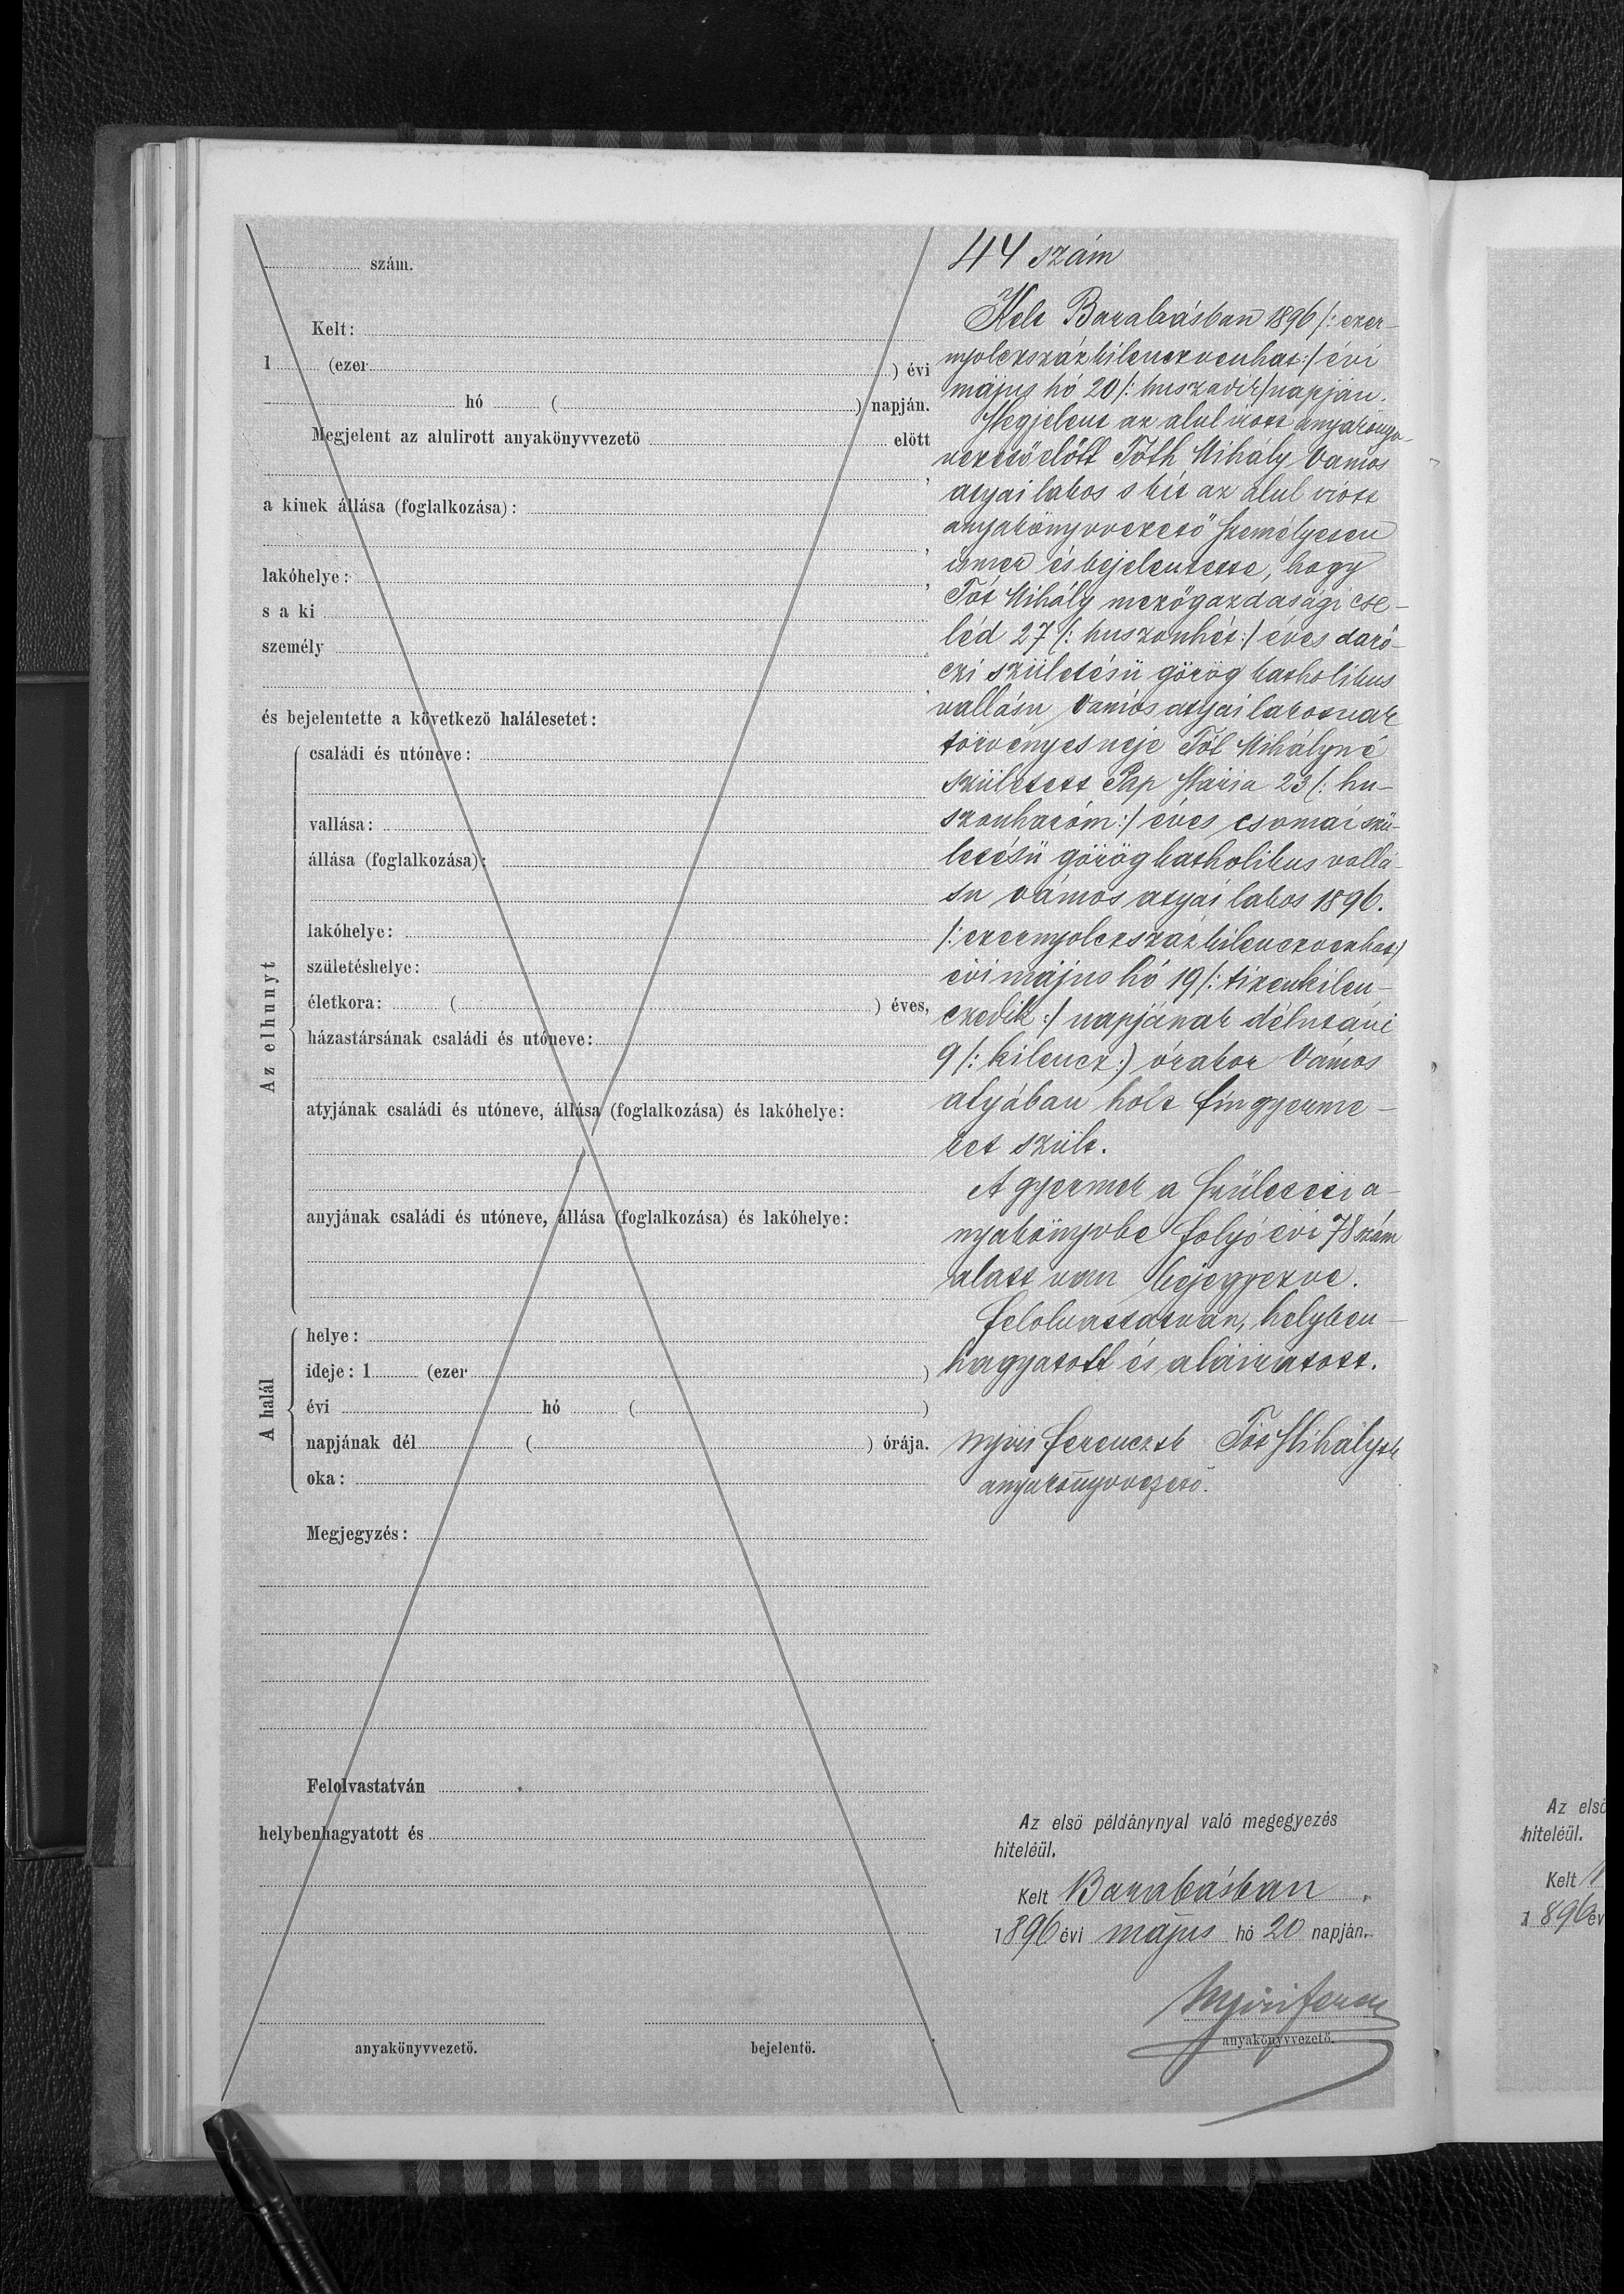 szám.
Kelt:
1 (ezer ) évi
hó ( ) napján.
Megjelent az alulirott anyakönyvvezető előtt
,
a kinek állása (foglalkozása):
,
lakóhelye: ,
s a ki
személy
,
és bejelentette a következő halálesetet:
Az elhunyt
családi és utóneve:
vallása:
állása (foglalkozása):
lakóhelye:
születéshelye:
életkora: ( ) éves,
házastársának családi és utóneve:
atyjának családi és utóneve, állása (foglalkozása) és lakóhelye:
anyjának családi és utóneve, állása (foglalkozása) és lakóhelye:
A halál
helye:
ideje: 1 (ezer )
évi hó ( )
napjának dél ( ) órája.
oka:
Megjegyzés:
Felolvastatván
helybenhagyatott és
anyakönyvvezető. bejelentő.
44 szám
Kelt Barabásban 1896 /: ezer-
nyolczszázkilenczvenhat:/ évi
május hó 20 /: huszadik/ napján.
Megjelent az alul irott anyakönyv-
vezető előtt Tóth Mihály Vámos
atyai lakos s kit az alul irott
anyakönyvvezető személyesen
ismer és bejelentette, hogy
Tót Mihály mezőgazdasági cse-
léd 27 /: huszonhét:/ éves daró-
czi születésü görög katholikus
vallásu Vámos atyai lakosnak
törvényes neje Tót Mihályné
született Pap Mária 23 /: hu-
szonharom:/ éves csomai szü-
letésü görög katholikus vallá-
su vámos atyai lakos 1896.
/: ezernyolczszázkilenczvenhat:/
évi május hó 19 /: tizenkilen-
czedik:/ napjának délutáni
9 /: kilencz:) órakor Vámos
atyában holt fiu gyerme-
ket szült.
A gyermek a születési a-
nyakönyvbe folyó évi 78 szám
alatt van bejegyezve.
Felolvastatván, helyben-
hagyatott és aláiratott.
Nyiri Ferencz sk Tót Mihály sk
anyakönyvvezető.
Az első példánynyal való megegyezés
hiteléül.
Kelt Barabásban .
1896 évi május hó 20 napján.
Nyiri Ferencz
anyakönyvvezető.
Az első
hiteléül.
Kelt
1896 év